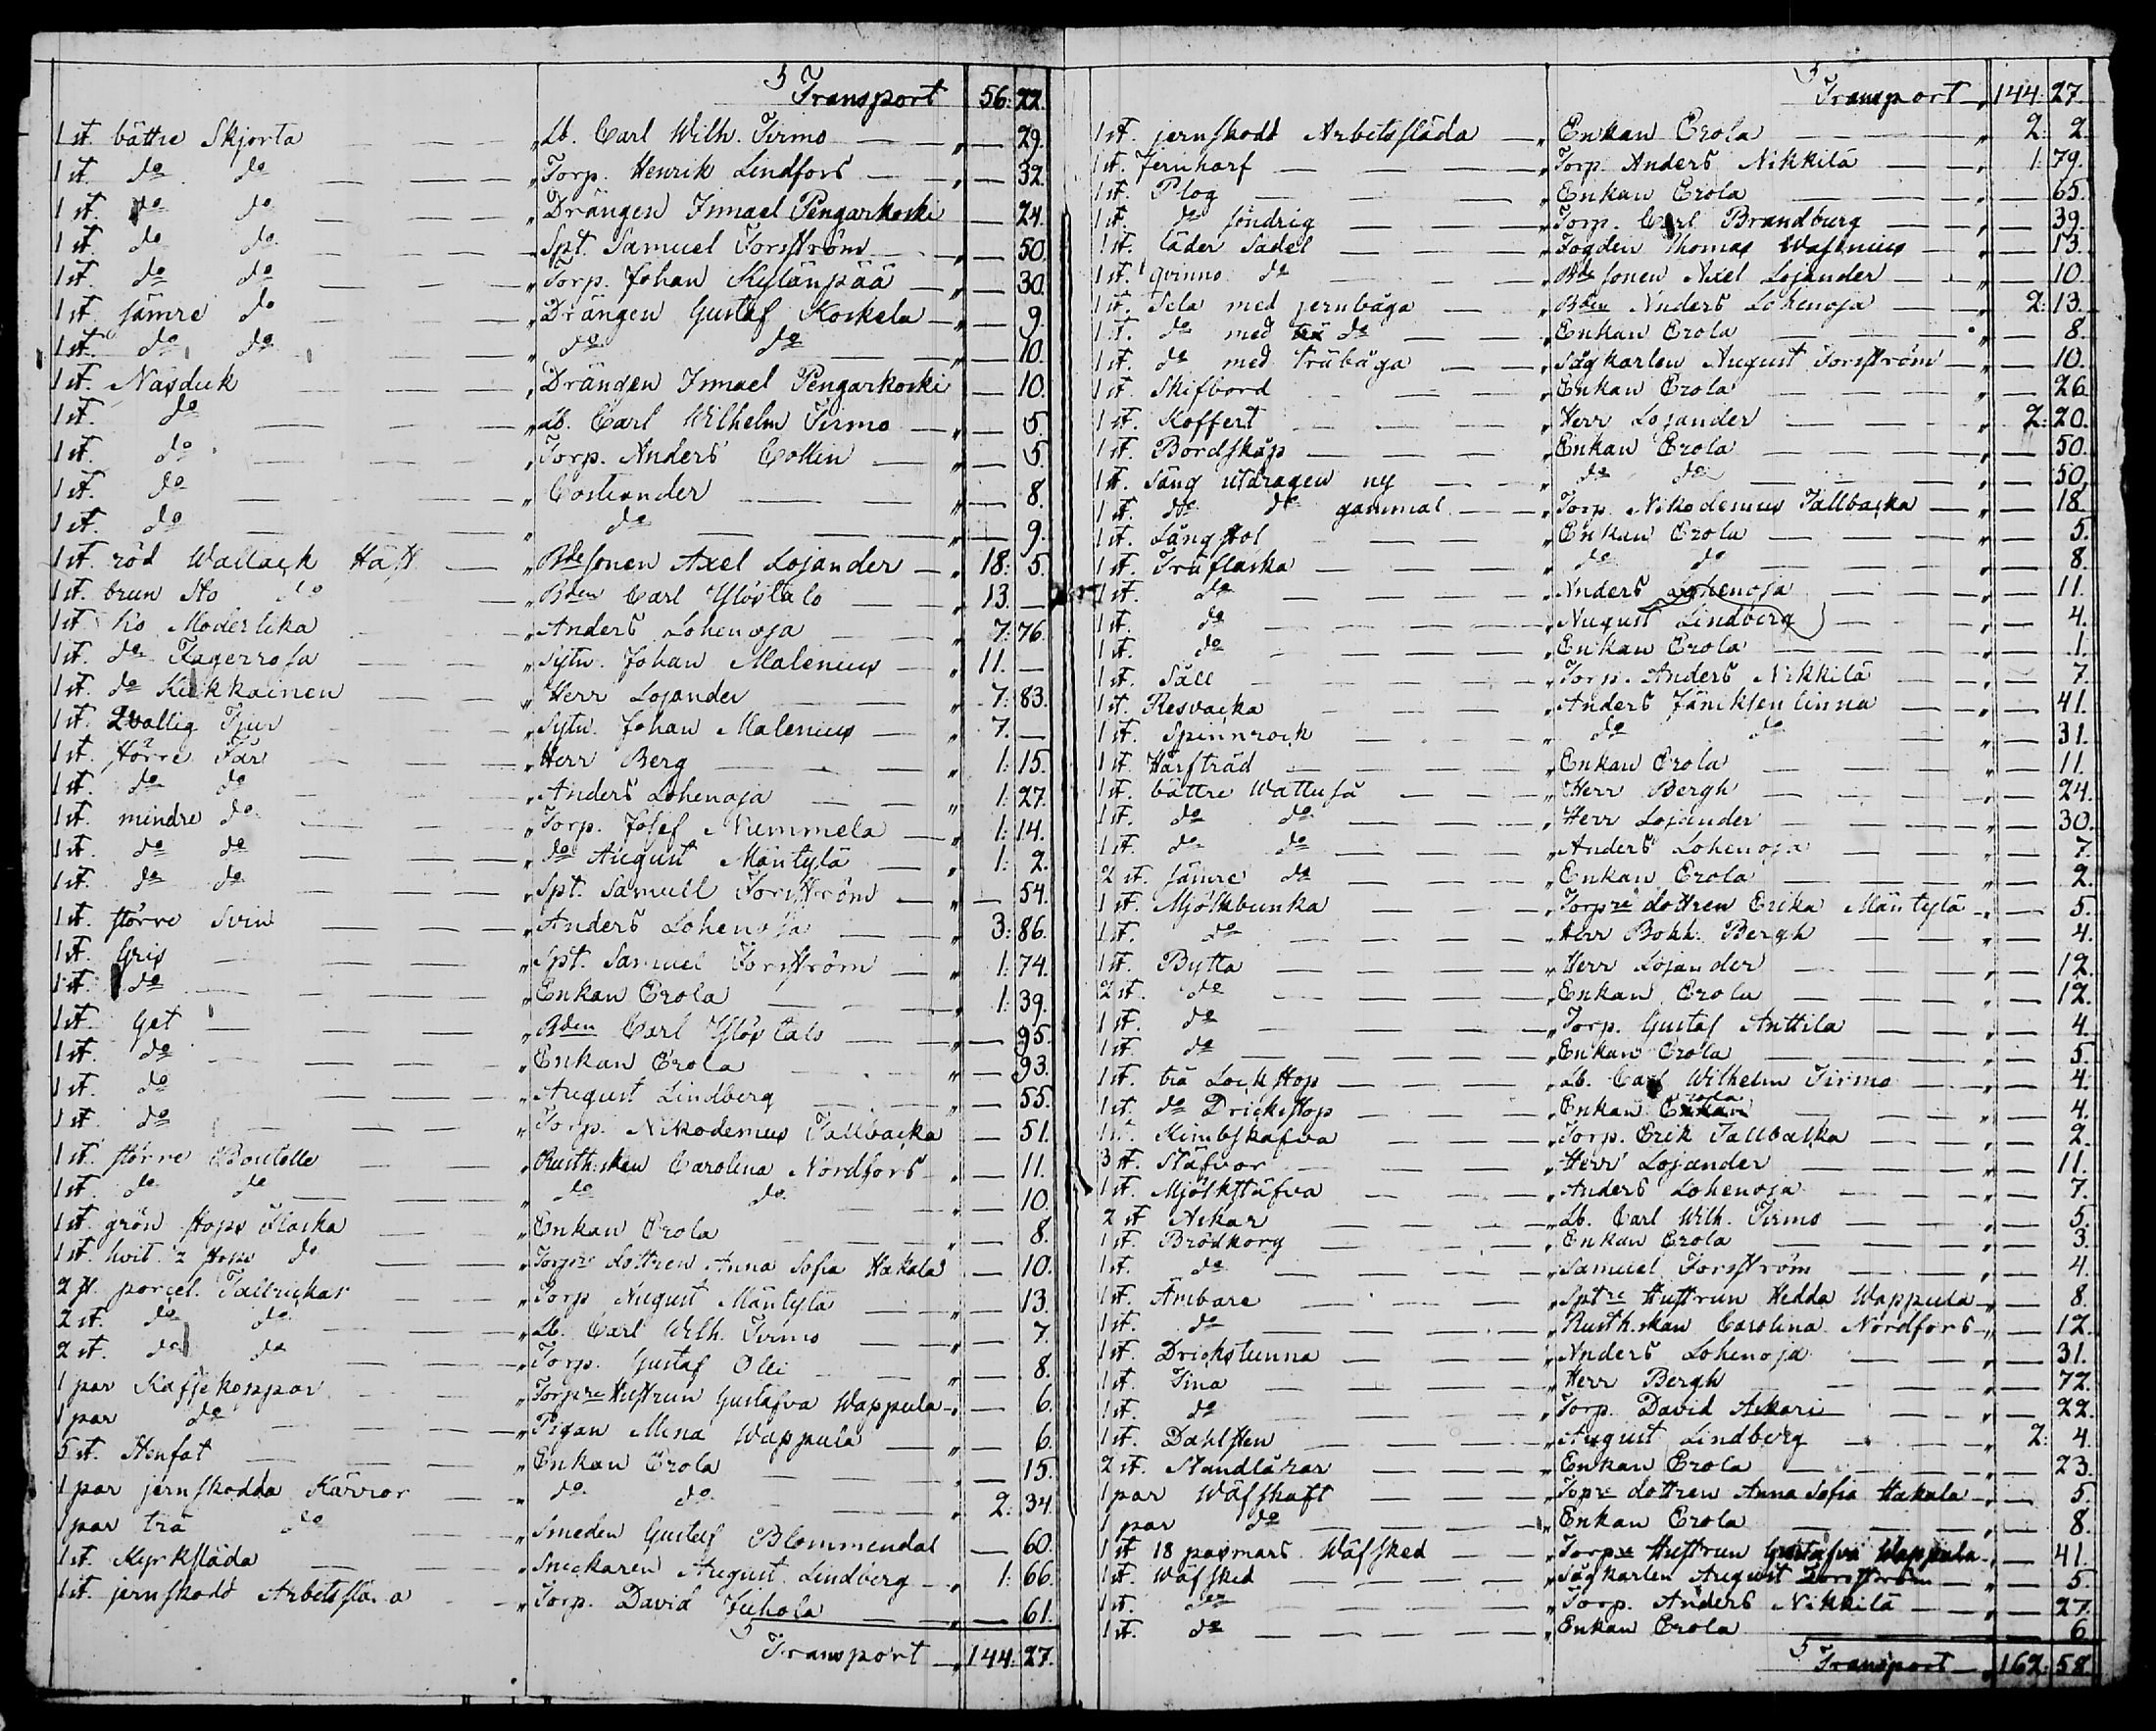 Transport 56: 22.
1 st. bättre Skjorta — „ Lb. Carl Wilh. Tirmo — „ — 29.
1 st. do do — „ Torp. Henrik Lindfors — „ — 32.
1 st. do do — „ Drängen Ismael Pengarkoski — 24.
1 st. do do — „ Spt. Samuel Forsström — „ — 50.
1 st. do do — „ Torp. Johan Kylänpää — „ — 30.
1 st. sämre do — „ Drängen Gustaf Koskela — „ — 9.
1 st. do do — „ do do — „ — 10.
1 st. Näsduk — „ Drängen Ismael Pengarkoski — 10.
1 st. do — „ Lb. Carl Wilhelm Tirmo — „ — 5.
1 st. do — „ Torp. Anders Collin — „ — 5.
1 st. do — „ Costiander — „ — 8.
1 st. do — „ do — „ — 9.
1 st. röd Wallack Häst — „ Bdesonen Axel Lojander — „ 18: 5.
1 st. brun Sto do — „ Bden Carl Yløstalo — „ 13. —
1 st. Ko Moderlika — „ Anders Lohenoja — „ 7: 76.
1 st. do Fagerrosa — „ Sytn. Johan Malenius — „ 11. —
1 st. do Kukkainen — „ Herr Lojander — „ 7: 83.
1 st. 2vallig Tjur — „ Sytn. Johan Malenius — „ 7. —
1 st. större Får — „ Herr Berg — „ 1: 15.
1 st. do do — „ Anders Lohenoja — „ 1: 27.
1 st. mindre do — „ Torp. Josef Nummela — „ 1: 14.
1 st. do do — „ do August Mäntylä — „ 1: 2.
1 st. do do — „ Spt. Samuell Forsström — „ — 54.
1 st. större Svin — „ Anders Lohenoja — „ 3: 86.
1 st. Gris — „ Spt. Samuel Forsström — „ 1: 74.
1 st. do — „ Enkan Erola — „ 1: 39.
1 st. Get — „ Bden Carl Yløstalo — „ — 95.
1 st. do — „ Enkan Erola — „ — 93.
1 st. do — „ August Lindberg — „ — 55.
1 st. do — „ Torp. Nikodemus Tallbacka — 51.
1 st. större Boutelle — „ Rusth:skan Carolina Nordfors „ — 11.
1 st. do do — „ do do — „ — 10.
1 st. grön stops Flaska — „ Enkan Erola — „ — 8.
1 st. hvit 2 stops do — „ Torpre dottren Anna Sofia Hakala — 10.
2 st. porcel. Tallrickar — „ Torp August Mäntylä — „ — 13.
2 st. do do — „ Lb. Carl Wilh. Tirmo — „ — 7.
2 st. do do — „ Torp. Gustaf Olli — „ — 8.
1 par Kaffekoppar — „ Torpre Hustrun Gustafva Wappula „ — 6.
1 par do — „ Pigan Mina Wappula — „ — 6.
5 st. Stenfat — „ Enkan Erola — „ — 15.
1 par jernskodda Kärror — „ do do — „ 2: 34.
1 par trä do — „ Smeden Gustaf Blommendal — 60.
1 st. Kyrksläda — „ Snickaren August Lindberg — „ 1: 66.
1 st. jernskodd Arbetssläda — „ Torp. David Juhola — „ — 61.
Transport — „ 144: 27.
Transport „ 144: 27.
1 st. jernskodd Arbetssläda — „ Enkan Erola — „ 2: 2.
1 st. Jernharf — „ Torp. Anders Nikkilä — „ 1: 79.
1 st. Plog — „ Enkan Erola — „ — 65.
1 st. do söndrig — „ Torp. Carl Brandburg — „ — 39.
1 st. läder Sadel — „ Fogden Thomas Wasenius — „ — 13.
1 st. qvinno do — „ Bdesonen Axel Lojander — „ — 10.
1 st. Sela med jernbåga — „ Bden Anders Lohenoja — „ 2: 13.
1 st. do med trä do — „ Enkan Erola — „ — 8.
1 st. do med träbåga — „ Sågkarlen August Forsström — „ — 10.
1 st. Skifbord — „ Enkan Erola — „ — 26.
1 st. Koffert — „ Herr Lojander — „ 2: 20.
1 st. Bordskåp — „ Enkan Erola — „ — 50.
1 st. Säng utdragen ny — „ do do — „ — 50.
1 st. do do gammal — „ Torp. Nikodemus Tallbacka — „ — 18.
1 st. Långstol — „ Enkan Erola — „ — 5.
1 st. Träflaska — „ do do — „ — 8.
1 st. do — „ Anders Lohenoja — „ — 11.
1 st. do — „ August Lindberg — „ — 4.
1 st. do — „ Enkan Erola — „ — 1.
1 st. Såll — „ Torp. Anders Nikkilä — „ — 7.
1 st. Resvacka — „ Anders Jäniksenlinna — „ — 41.
1 st. Spinnrock — „ do do — „ — 31.
1 st. Härfträd — „ Enkan Erola — „ — 11.
1 st. bättre Wattuså — „ Herr Bergh — „ — 24.
1 st. do do — „ Herr Lojander — „ — 30.
1 st. do do — „ Anders Lohenoja — „ — 7.
2 st. sämre do — „ Enkan Erola — „ — 2.
1 st. Mjölkbunka — „ Torpre dottren Erika Mäntylä „ — 5.
1 st. do — „ Herr Bokh. Bergh — „ — 4.
1 st. Bytta — „ Herr Lojander — „ — 12.
2 st. do — „ Enkan Erola — „ — 12.
1 st. do — „ Torp. Gustaf Anttila — „ — 4.
1 st. do — „ Enkan Erola — „ — 5.
1 st. trä Lockstop — „ Lb. Carl Wilhelm Tirmo — „ — 4.
1 st. do Drickstop — „ Enkan Erola — „ — 4.
1 st. Kimbskafva — „ Torp. Erik Tallbacka — „ — 2.
3 st. Stäfvor — „ Herr Lojander — „ — 11.
1 st. Mjölkstäfva — „ Anders Lohenoja — „ — 7.
2 st. Askar — „ Lb. Carl Wilh. Tirmo — „ — 5.
1 st. Brödkorg — „ Enkan Erola — „ — 3.
1 st. do — „ Samuel Forsström — „ — 4.
1 st. Ämbare — „ Sptre Hustrun Hedda Wappula „ — 8.
1 st. do — „ Rusth.skan Carolina Nordfors „ — 12.
1 st. Drickstunna — „ Anders Lohenoja — „ — 31.
1 st. Tina — „ Herr Bergh — „ — 72.
1 st. do — „ Torp. David Askari — „ — 22.
1 st. Dahlsten — „ August Lindberg — „ 2: 4.
2 st. Standlårar — „ Enkan Erola — „ — 23.
1 par Wäfskaft — „ Topre dottren Anna Sofia Hakala „ — 5.
1 par do — „ Enkan Erola — „ — 8.
1 st. 18 pasmars Wäfsked — „ Torpre Hustrun Gustafva Wappula „ — 41.
1 st. Wäfsked — „ Sågkarlen August Forsström — „ — 5.
1 st. do — „ Torp. Anders Nikkilä — „ — 27.
1 st. do — „ Enkan Erola — „ — 6.
Transport — „ 162: 58.